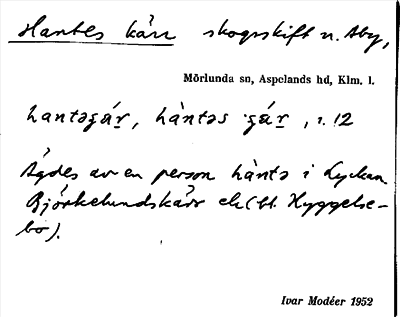 Hantes kärr skogsskift n. Aby,
Mörlunda sn, Aspelands hd, Klm. l.
hantəʂár, hàntəs ʂár, 1. 12
Ägdes av en person hàntə i Lyckan
Björkelundskärr el (bl. Hyggelse-
bo).
Ivar Modéer 1952